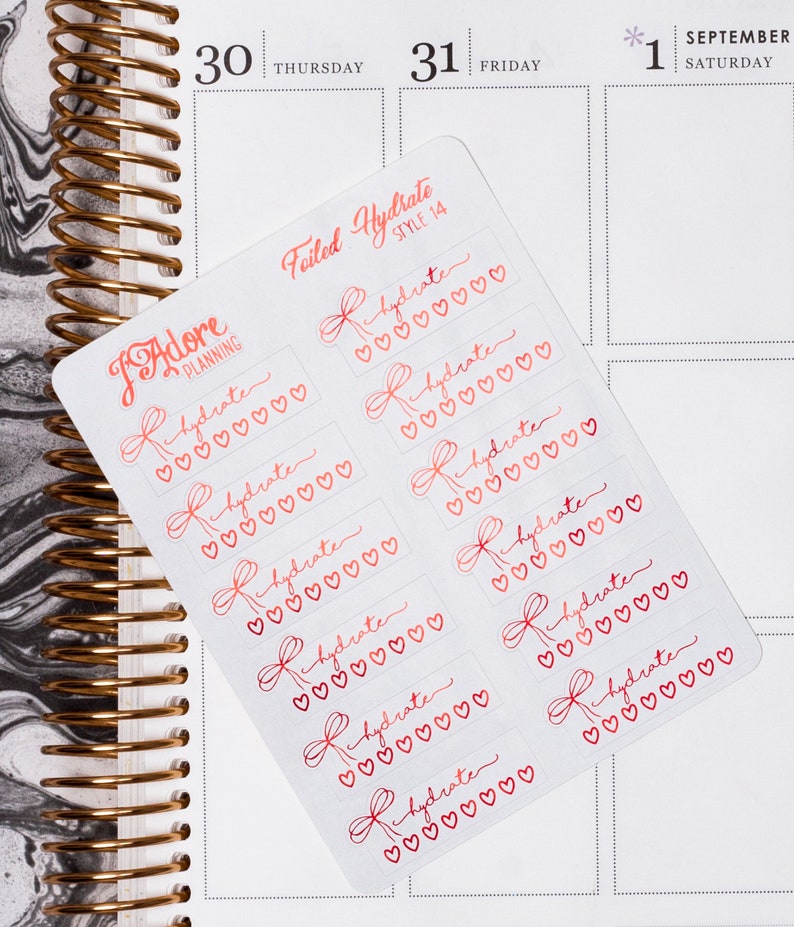 30 THURSDAY
31 FRIDAY
*1 SEPTEMBER
SATURDAY
Foiled Hydrate
STYLE 14
J'Adore
PLANNING
hydrate
hydrate
hydrate
hydrate
hydrate
hydrate
hydrate
hydrate
hydrate
hydrate
hydrate
hydrate